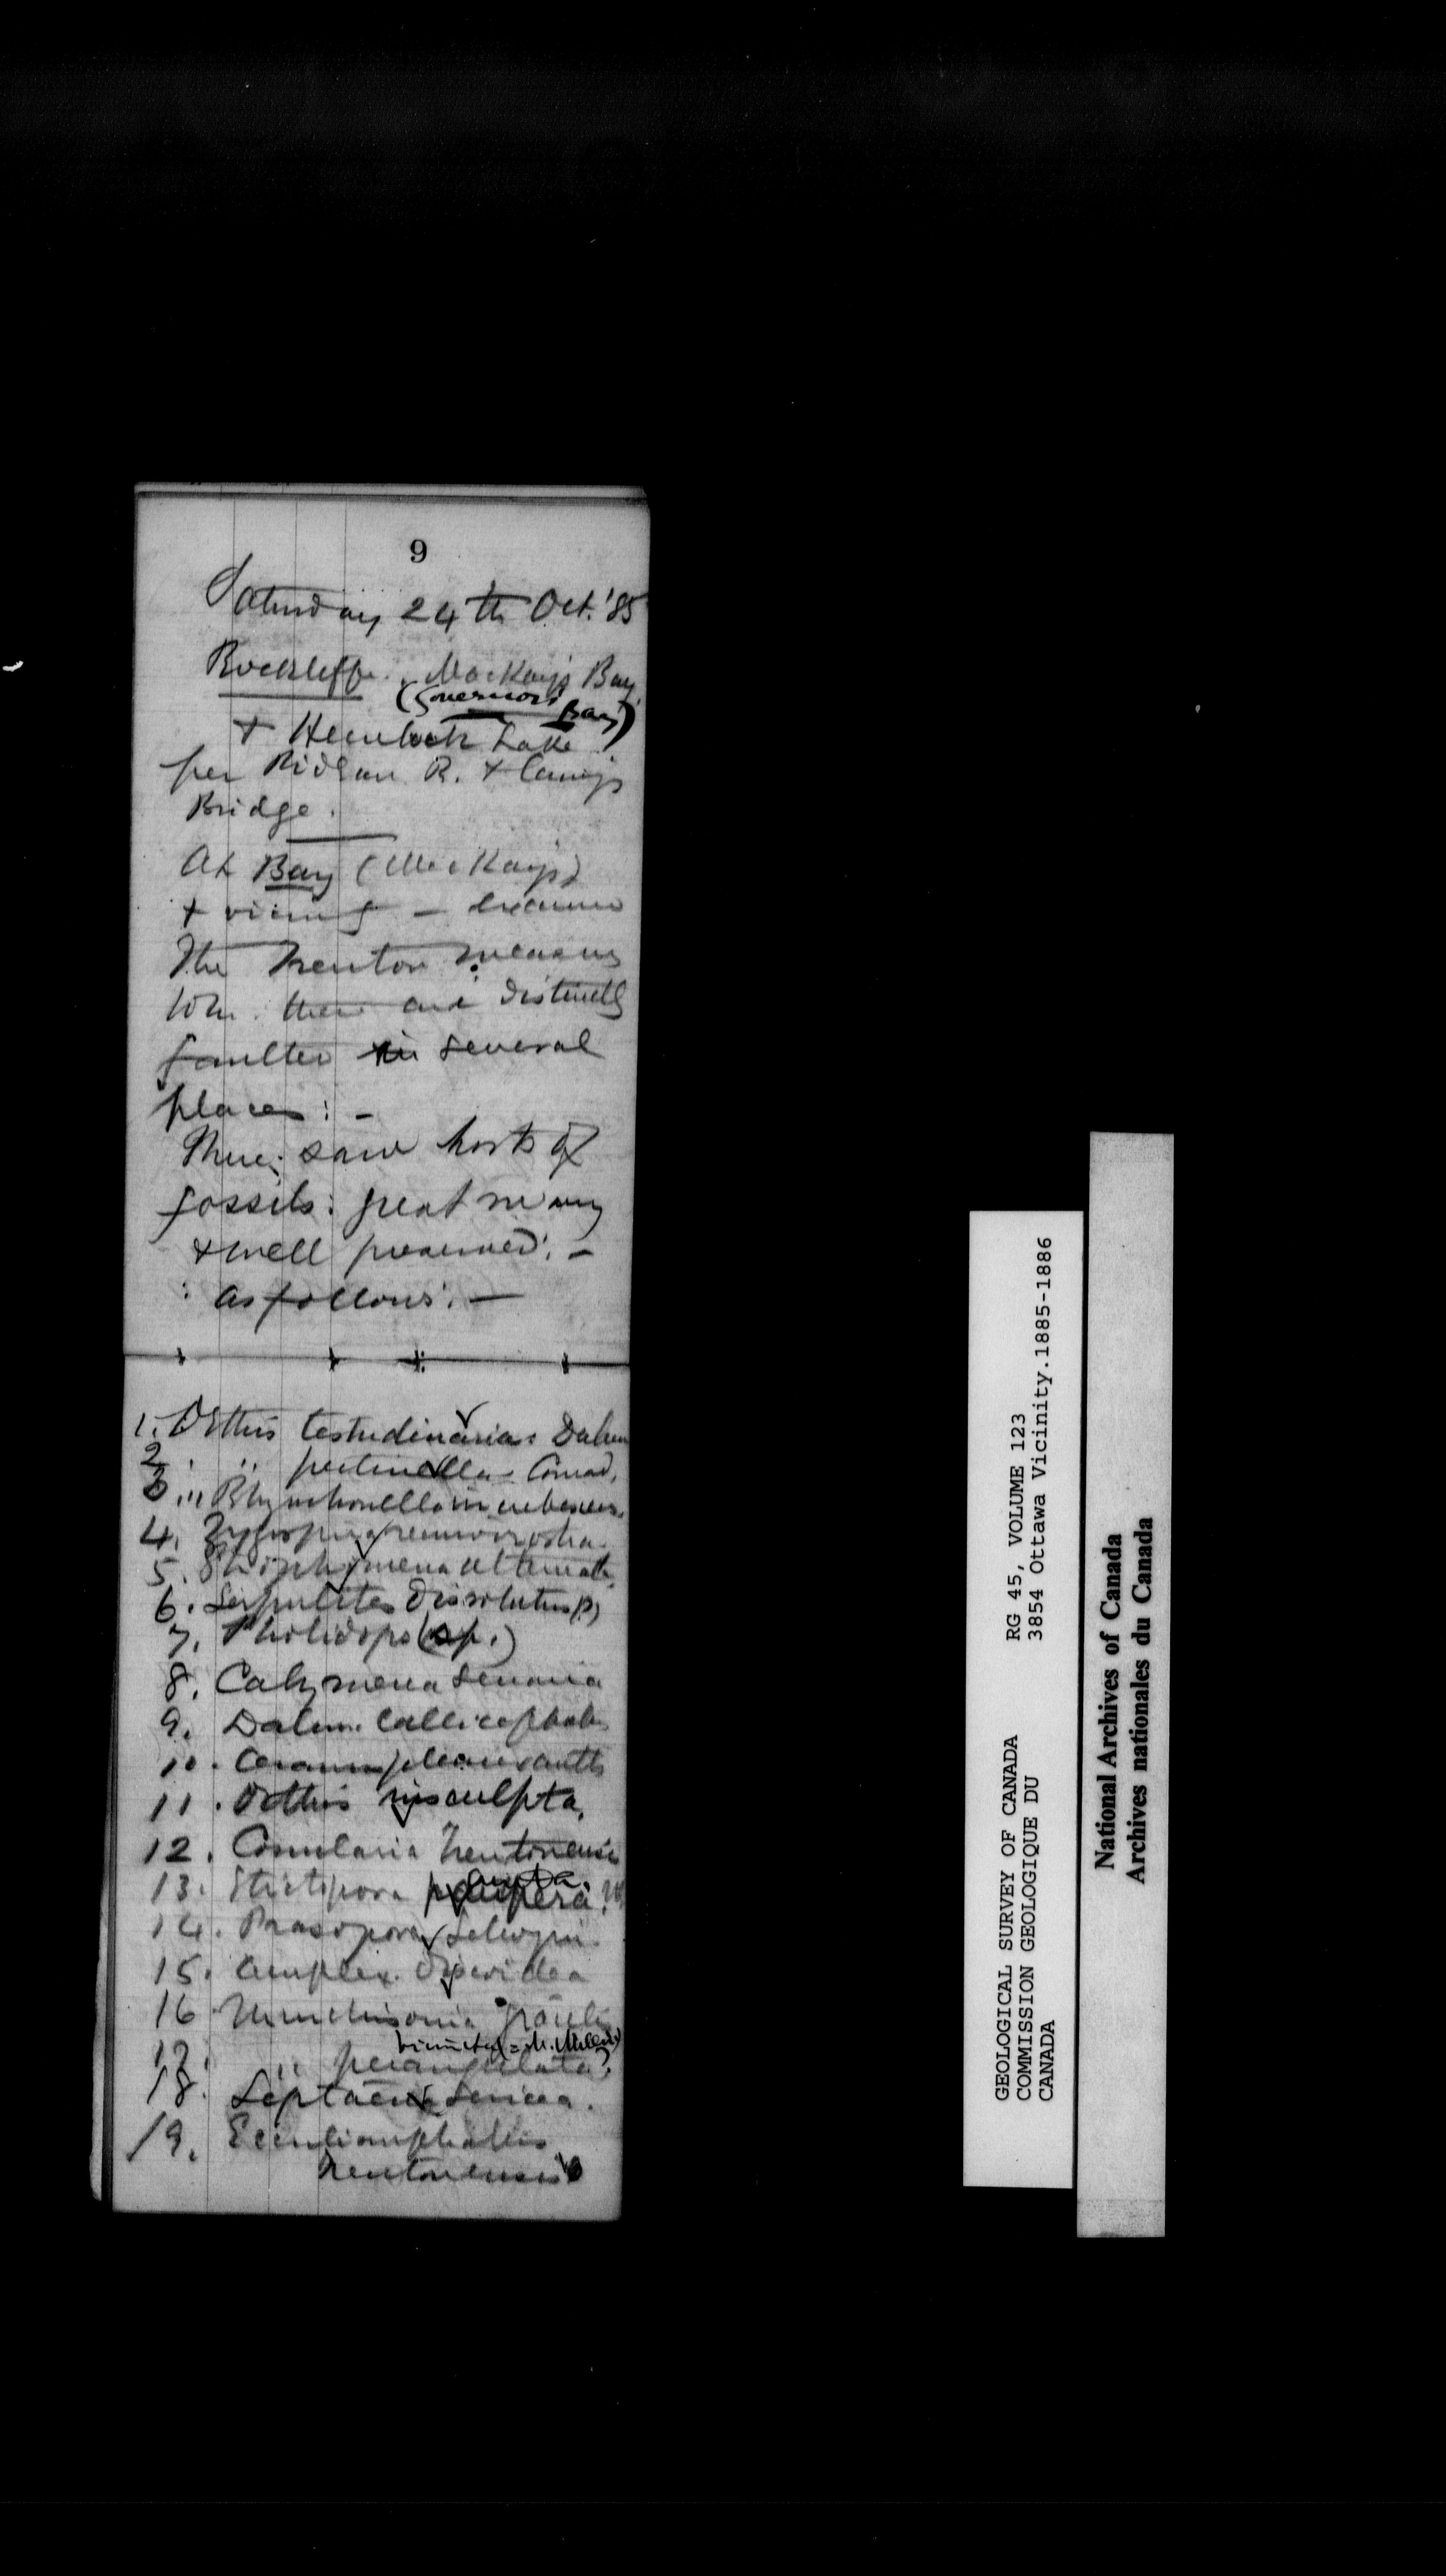 9
Saturday 24th Oct. '85
Rockliffe. MacKay's Bay
(Governor's Bay)
+ Hemlock Lake
per Rideau R. +
Bridge.
At Bay (MacKay's)
+ vicinity — examined
The Trenton measures
wh. there are distinctly
faulted in several
places: —
There saw hosts of
fossils: great many
+ well preserved: —
: as follows: —
1. Orthis testudinaria: Dalm
2. " pectinella - Conrad,
3. " Rhynchonella increbescens.
4. Zygospira recurvirostra.
5. Strophomena alternata
6. Serpulites dissolutus
7. Pholidops (sp.)
8. Calymena senaria
9. Dalm. callicephalus
10. Ceraurus pleurexanth
11. Orthis insculpta.
12. Conularia Trentonensis
acuta.
13. Stictopora
14. Prasopora Selwyni.
15. Amplex. opeoidea
16 Murchisonia gracilis
bicincta = M. Milleri)
17. " perangulata?
18. Leptaena sericea.
19. Ecculiomphallus
Trentonensis
GEOLOGICAL SURVEY OF CANADA
COMMISSION GEOLOGIQUE DU
CANADA
RG 45, VOLUME 123
3854 Ottawa Vicinity.1885-1886
National Archives of Canada
Archives nationales du Canada